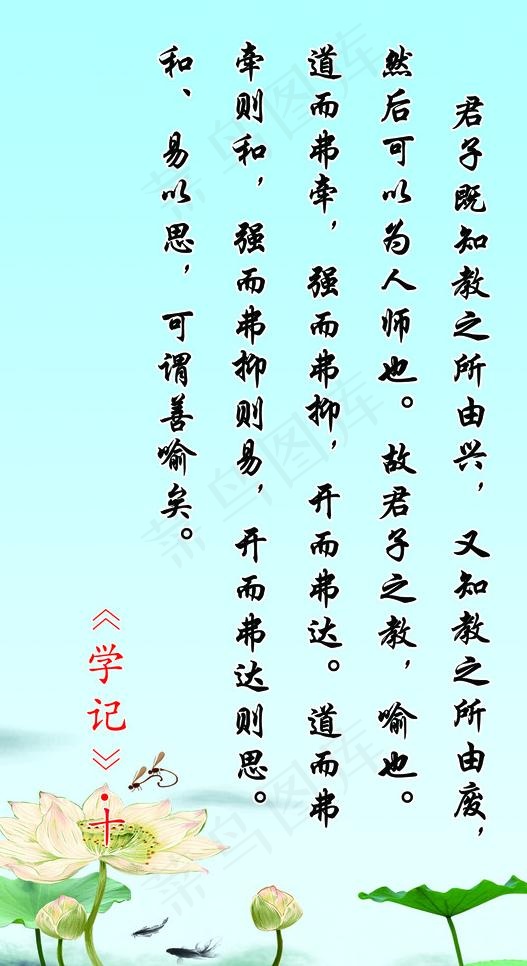 君子既知教之所由兴，又知教之所由废，
然后可以为人师也。故君子之教，喻也。
道而弗牵，强而弗抑，开而弗达。道而弗
牵则和，强而弗抑则易，开而弗达则思。
和、易以思，可谓善喻矣。
《学记》·十
菜鸟图库